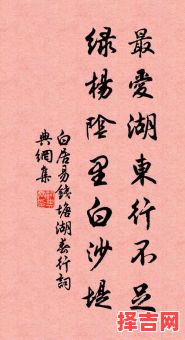 最愛湖東行不足
绿楊陰里白沙堤
白居易錢塘湖春行詞
典網集
择吉网
zhaojiw.com